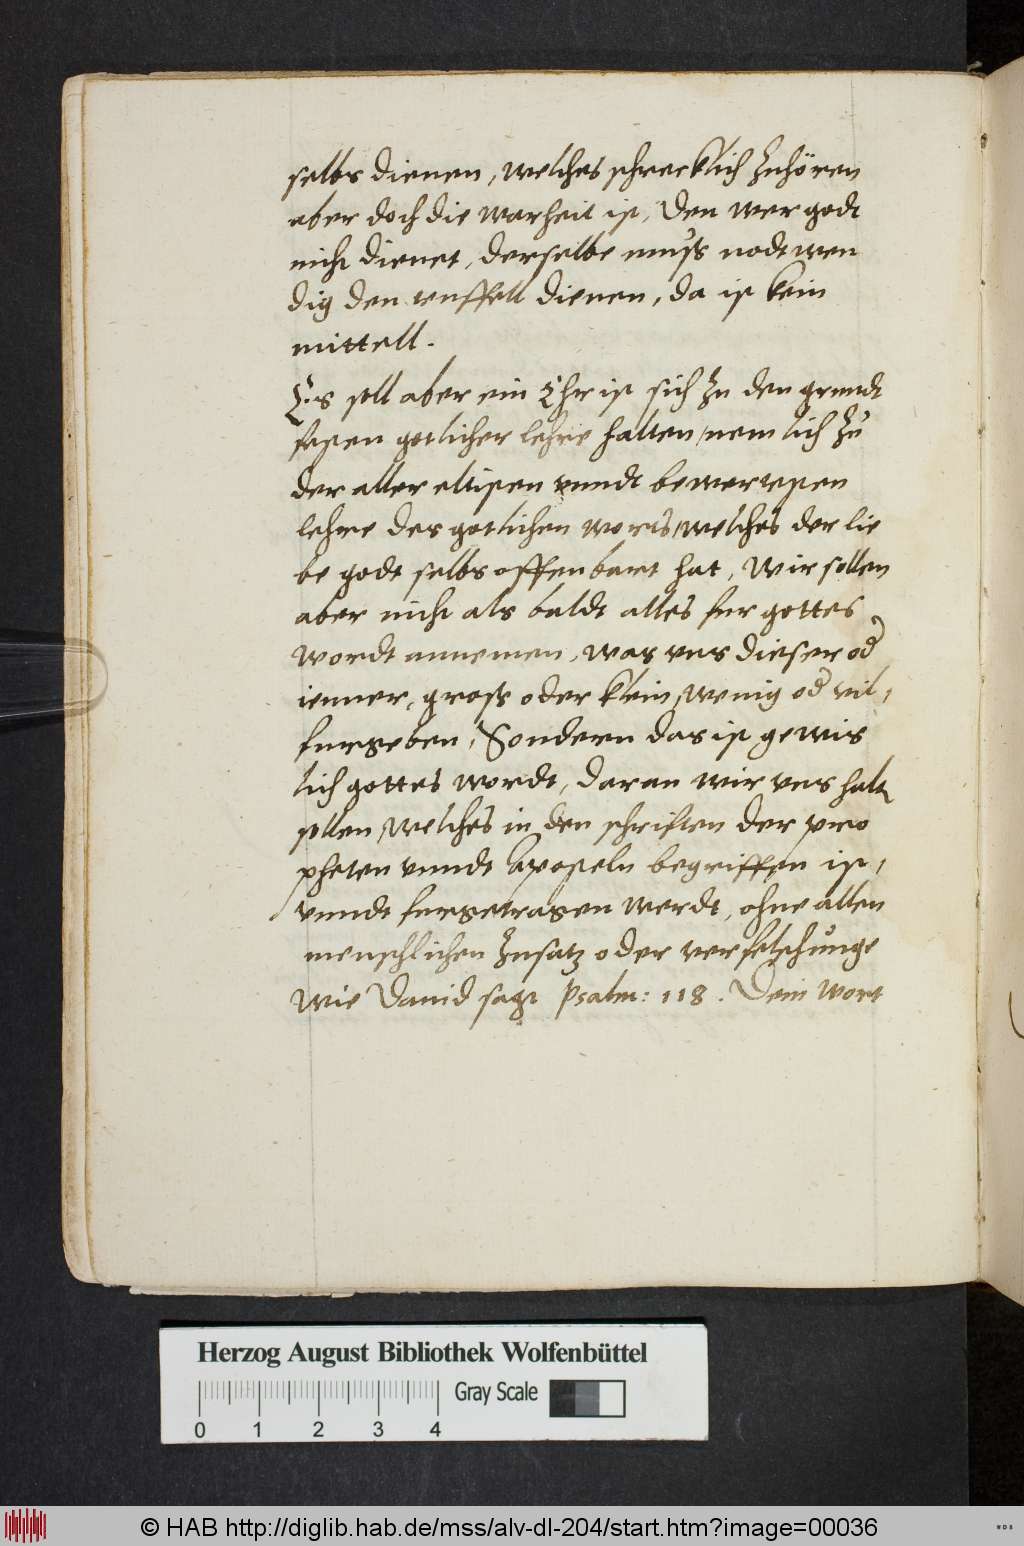 selbs dienen, welches schrecklich zuhören
aber doch die warheit ist, Den wer godt
nicht dienet, derselbe muss nodtwen
dig den teuffell dienen, da ist kein
mittell.
Es soll aber ein Christ sich zu den grundt
festen gotlicher lehre halten, nemlich zu
der aller eltisten vnndt bewertesten
lehre des gotlichen worts, welches der lie
be godt selbs offenbart hat, Wir sollen
aber nicht als baldt alles fur gottes
wordt annemen, was vns dieser od
ienner, gross oder klein, wenig od vil,
furgeben, Sondern das ist gewis
lich gottes wordt, daran wir vns halt
sollen, welches in den schriften der pro
pheten vnndt Aposteln begriffen ist,
vnndt furgetragen werdt, ohne allen
menschlichen zusatz oder verfelschunge
wie Dauid sagt Psalm: 118. Dein wort
Herzog August Bibliothek Wolfenbüttel
Gray Scale
0 1 2 3 4
© HAB http://diglib.hab.de/mss/alv-dl-204/start.htm?image=00036